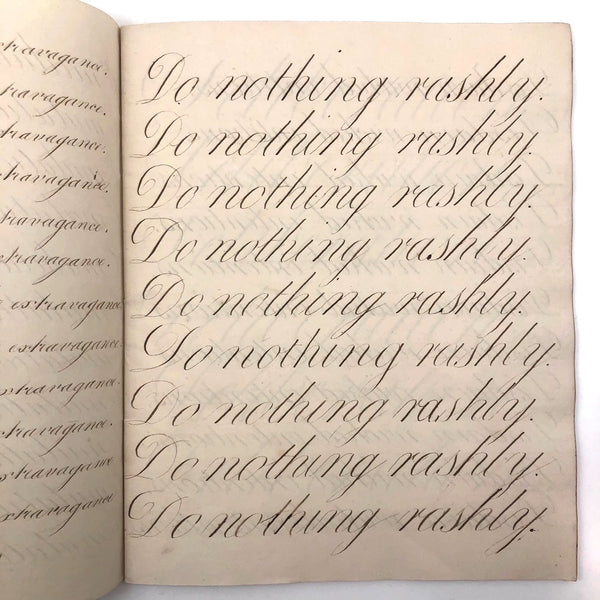 extravagance.
extravagance.
extravagance.
extravagance.
extravagance.
extravagance.
extravagance.
extravagance.
extravagance.
extravagance.
extravagance
extravagance
Do nothing rashly.
Do nothing rashly.
Do nothing rashly.
Do nothing rashly.
Do nothing rashly.
Do nothing rashly.
Do nothing rashly.
Do nothing rashly.
Do nothing rashly.